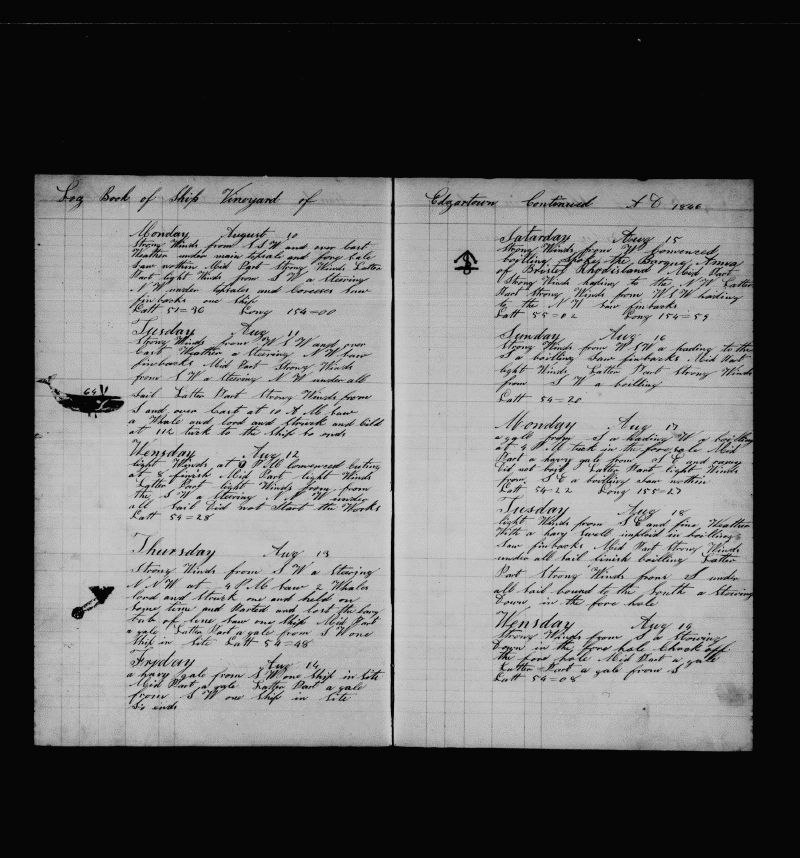 Log Book of Ship Vineyard of
Monday August 10
Strong Winds from S S W and over Cast
Weather under main topsale and
Saw nothin Mid Part Strong Winds Latter
Part light Winds from S W a Steering
N W under topsales and Corses Saw
finbacks one Ship
Latt 51=36 Long 154=00
Tuesday Aug 11
Strong Winds from W S W and over
Cast Weather a Steering N W Saw
finbacks Mid Part Strong Winds
from S W a Steering N W under all
Sail Latter Part Strong Winds from
S and over Cast at 10 A M Saw
a Whale and lord and Struck and kild
at 11½ tuck to the Ship So ends
64
Wensday Aug 12
light Winds at P M Comenced Cuting
at 8 finish Mid Part light Winds
Latter Part light Winds from from
the S W a Steering N N W under
all Sail did not Start the Works
Latt 54=28
Thursday Aug 13
Strong Winds from S W a Steering
N N W at 4 P M Saw 2 Whales
lord and Struck one and held on
Some time and Parted and lost the
tub of line Saw one Ship Mid Part
a gale Latter Part a gale from S W one
Ship in Site Latt 54=48
Fryday Aug 14
a havy gale from S W one Ship in Site
Mid Part a gale Latter Part a gale
from S W one Ship in Site
So ends
Edgartown Continued A D 1846
Saturday Aug 15
Strong Winds from W Comenced
boilling Spoke the Barque Anwa
of Bristol Rhodisland Mid Part
Strong Winds hading to the N W Latter
Part Strong Winds from W S W hading
to the N W Saw finbacks
Latt 55=02 Long 154=59
Sunday Aug 16
Strong Winds from W S W a hading to the
S a boilling Saw finbacks Mid Part
light Winds Latter Part Strong Winds
from S W a boilling
Latt 54=20
Monday Aug 17
a gale from S a hading W a boilling
at 4 P M tuck in the fore sale Mid
Part a havy gale from S E and
did not boil Latter Part light Winds
from S E a boilling Saw nothin
Latt 54=22 Long 155=27
Tuesday Aug 18
light Winds from S E and fine Weather
With a havy Swell imploid in boilling
Saw finbacks Mid Part Strong Winds
under all Sail finish boilling Latter
Part Strong Winds from S under
all Sail bound to the South a Stowing
Down in the fore hole
Wensday Aug 19
Strong Winds from S a Stowing
Down in the fore hole Chock off
the fore hole Mid Part a gale
Latter Part a gale from S
Latt 54=08